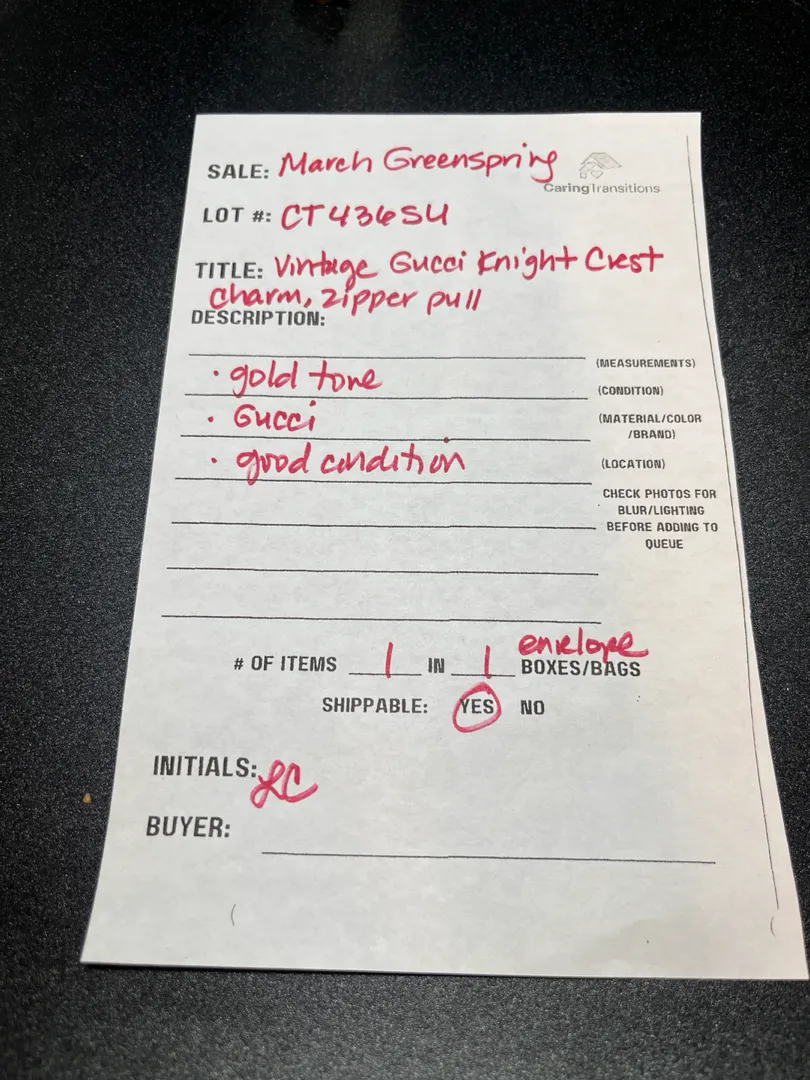 SALE: March Greenspring
CaringTransitions
LOT #: CT436SU
TITLE: Vintage Gucci Knight Crest
charm, zipper pull
DESCRIPTION:
(MEASUREMENTS)
· gold tone
(CONDITION)
· Gucci
(MATERIAL/COLOR
/BRAND)
· good condition
(LOCATION)
CHECK PHOTOS FOR
BLUR/LIGHTING
BEFORE ADDING TO
QUEUE
envelope
# OF ITEMS 1 IN 1 BOXES/BAGS
SHIPPABLE: YES NO
INITIALS: LC
BUYER: